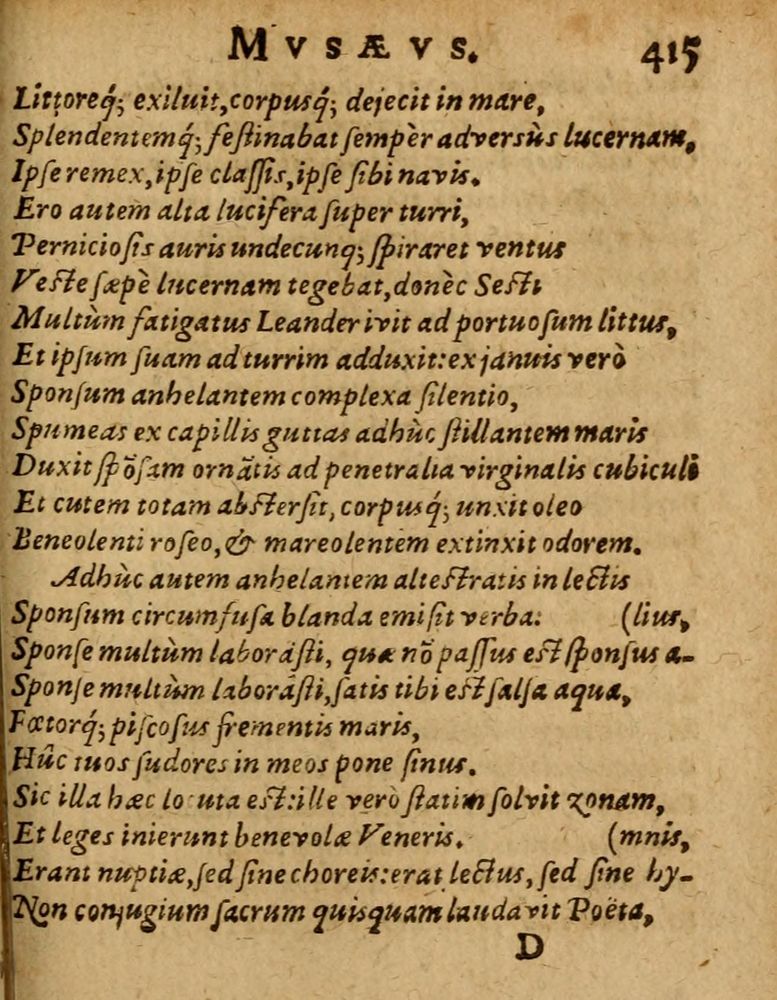 MVSÆVS. 415
Littoreq́; exiluit, corpusq́; dejecit in mare,
Splendentemq́; feſtinabat ſempèr adversùs lucernam,
Ipſe remex, ipſe claſſis, ipſe ſibi navis.
Ero autem alta lucifera ſuper turri,
Pernicioſis auris undecunq; ſpiraret ventus
Veſte ſæpè lucernam tegebat, donèc Seſti
Multùm fatigatus Leander ivit ad portuoſum littus,
Et ipſum ſuam ad turrim adduxit: ex januis verò
Sponſum anhelantem complexa ſilentio,
Spumeas ex capillis guttas adhùc ſtillantem maris
Duxit ſpõſam ornãtis ad penetralia virginalis cubiculi
Et cutem totam abſterſit, corpusq́; unxit oleo
Beneolenti roſeo, & mareolentem extinxit odorem.
Adhùc autem anhelantem alte ſtratis in lectis
Sponſum circumfuſa blanda emiſit verba: (lius,
Sponſe multùm laboráſti, quæ nõ paſſus eſt ſponſus a-
Sponſe multùm laboráſti, ſatis tibi eſt ſalſa aqua,
Fœtorq́; piſcoſus frementis maris,
Hûc tuos ſudores in meos pone ſinus.
Sic illa hæc locuta eſt: ille verò ſtatim ſolvit zonam,
Et leges inierunt benevolæ Veneris. (mnis,
Erant nuptiæ, ſed ſine choreis: erat lectus, ſed ſine hy-
Non conjugium ſacrum quisquam laudavit Poëta,
D